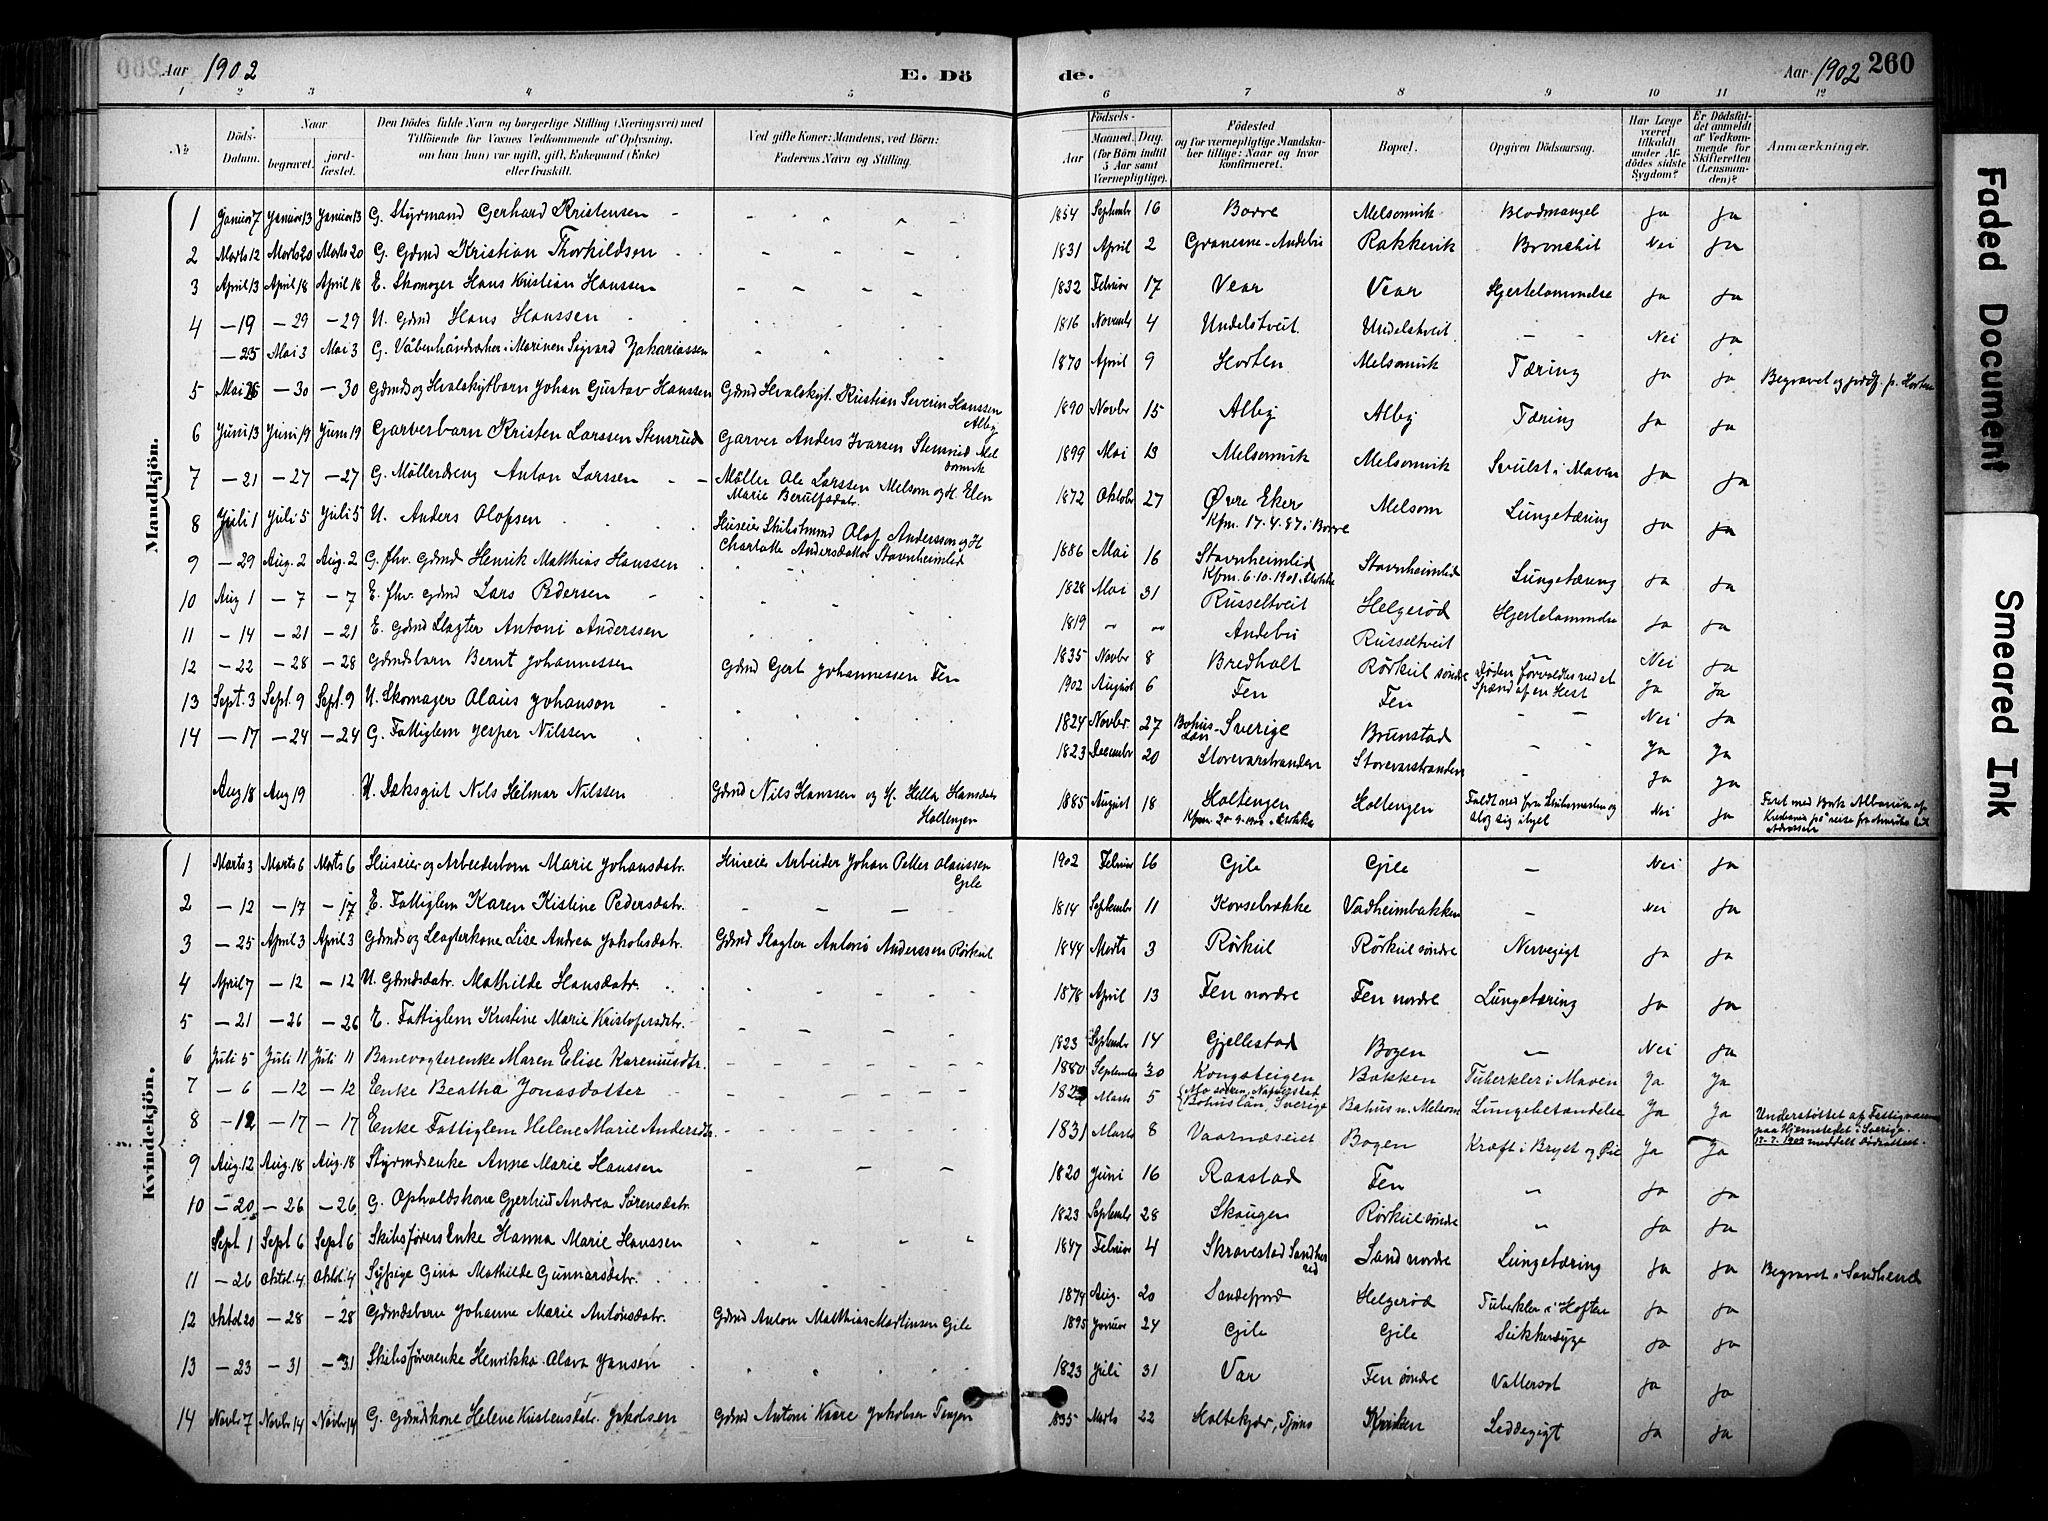 Aar 1902 E. Döde. Aar 1902 260
1 2 3 4 5 6 7 8 9 10 11 12
№
Döds-Datum.
Naar
begravet.
jordfæstet.
Den Dödes fulde Navn og borgerlige Stilling (Næringsvei) med
Tilföiende for Voxnes Vedkommende af Oplysning,
om han (hun) var ugift, gift, Enkemand (Enke)
eller fraskilt.
Ved gifte Koner: Mandens, ved Börn:
Faderens Navn og Stilling.
Födsels-
Aar
Maaned. Dag.
(for Börn indtil
5 Aar samt
Værnepligtige).
Födested
og for værnepligtige Mandskaber tillige: Naar og hvor
konfirmeret.
Bopæl.
Opgiven Dödsaarsag.
Har Læge
været
tilkaldt
under Afdödes sidste
Sygdom?
Er Dödsfaldet anmeldt
af Vedkommende for
Skifteretten
(Lensmanden)?
Anmærkninger.
Mandkjön.
1 Januar 7 Januar 13 Januar 13 G. Styrmand Gerhard Kristensen 1854 September 16 Borre Melsomvik Blodmangel Ja Ja
2 Marts 12 Marts 20 Marts 20 G. Gdmd Kristian Thorkildsen 1831 April 2 Granerne - Andebu Rakkevik Bronchit Nei Ja
3 April 13 April 18 April 18 E. Skomager Hans Kristian Hanssen 1832 Februar 17 Vear Vear Hjertelammelse Ja Ja
4 — 19 — 29 — 29 U. Gdmd Hans Hanssen 1816 November 4 Undelstveit Undelstveit — Nei Ja
— 25 Mai 3 Mai 3 G. Våbenhåndværker i Marinen Sigvard Zakariassen 1870 April 9 Horten Melsomvik Tæring Ja Ja Begravet og jordf. p. Horten
5 Mai 26 — 30 — 30 Gdmds og Hvalskytbarn Johan Gustav Hanssen Gdmd Hvalskyt. Kristian Severin Hanssen Alby 1890 Novbr 15 Alby Alby Tæring Ja Ja
6 Juni 13 Juni 19 Juni 19 Garverbarn Kristen Larssen Stensrud Garver Anders Ivarsen Stensrud Melsomvik 1899 Mai 13 Melsomvik Melsomvik Svulst i Maven Ja Ja
7 — 21 — 27 — 27 G. Möllerdreng Anton Larssen Möller Ole Larssen Melsom og H. Elen
Marie Berulfsdatr. 1872 Oktober 27 Øvre Eker
Kfm. 17.4.87 i Borre Melsom Lungetæring Ja Ja
8 Juli 1 Juli 5 Juli 5 U. Anders Olofsen Huseier Skibstmmd Olof Andersson og H
Charlotte Andersdatter Stavnheimlid 1886 Mai 16 Stavnheimlid
Kfm. 6.10.1901 i Stokke Stavnheimlid Lungetæring Ja Ja
9 — 29 Aug. 2 Aug. 2 G. fhv. Gdmd Henrik Matthias Hanssen 1828 Mai 31 Russeltveit Helgerød Hjertelammelse Ja Ja
10 Aug 1 — 7 — 7 E. fhv. gdmd Lars Pedersen 1819 Andebu Russeltveit Nei Ja
11 — 14 — 21 — 21 E. Gdmd Slagter Antoni Anderssen 1835 Novbr 8 Bredholt Rörkul søndre Døden forvoldtes ved et
Spænd af en Hest Ja Ja
12 — 22 — 28 — 28 Gdmdsbarn Bernt Johannessen Gdmd Gert Johannessen Fen 1902 August 6 Fen Fen Nei Ja
13 Sept. 3 Sept. 9 Sept. 9 U. Skomager Olaus Johanson 1824 Novbr. 27 Bohus Län - Sverige Brunstad Ja Ja
14 — 17 — 24 — 24 G. Fattiglem Jesper Nilssen 1823 December 20 Storevarstranden Storevarstranden Ja Ja
Aug 18 Aug 19 U. Dæksgut Nils Helmar Nilssen Gdmd Nils Hanssen og H. Hella Hansdatr
Holtengen 1885 August 18 Holtengen
Kfm. 1900 i Stokke Holtengen Faldt ned fra Skibsmasten og
slog sig ihjel Nei Ja Faret med Bark Albania af
Kristiania på reise fra Amerika til
Kvindekjön.
1 Marts 3 Marts 6 Marts 6 Huseier og Arbeiderbarn Marie Johansdatr. Huseier Arbeider Johan Petter Olaussen
Gile 1902 Februar 16 Gile Gile — Nei Ja
2 — 12 — 17 — 17 E. Fattiglem Karen Kistine Pedersdatr. 1814 September 11 Korsebrække Vadheimbakken — Nei Ja
3 — 25 April 3 April 3 Gdmds og Slagterkone Lise Andrea Jakobsdatr. Gdmd Slagter Antoni Anderssen Rörkul 1844 Marts 3 Rörkul Rörkul søndre Nervegigt Ja Ja
4 April 7 — 12 — 12 U. Gdmdsdatr. Mathilde Hansdatr. 1878 April 13 Fen nordre Fen nordre Lungetæring Ja Ja
5 — 21 — 26 — 26 E. Fattiglem Kristine Marie Kristofersdatr. 1823 September 14 Gjellestad Bogen Nei Ja
6 Juli 5 Juli 11 Juli 11 Banevogterenke Maren Elise Kareniusdtr. 1880 September 30 Kongsteigen Bakken Tuberkler i Maven Ja Ja
7 — 6 — 12 — 12 Enke Beatha Jonasdatter Marts 5 Bohuslän, Sverige Bahus u. Melsom Lungebetændelse Ja Ja Understøttet af Fattigvæsen
paa Hjemstedet i Sverige.
17.7.1902 meddelt Dødsattest.
8 — 12 — 17 — 17 Enke Fattiglem Helene Marie Andersdtr. 1831 Marts 8 Vaarnæseiet Bogen Kræft i Bryst og Ja Ja
9 Aug. 12 Aug. 18 Aug. 18 Styrmdsenke Anne Marie Hanssen 1820 Juni 16 Raastad Fen Ja Ja
10 — 20 — 26 — 26 G. Opholdskone Gjertrud Andrea Sørensdatr. 1823 September 28 Skaugen Rörkul søndre Ja Ja
Sept 1 Sept 6 Sept 6 Skibsførers Enke Hanna Marie Hanssen 1847 Februar 4 Skravestad Sandherred Sand nordre Lungetæring Ja Ja Begravet i Sandherred
11 — 26 Oktob. 4 Oktob. 4 Sypige Gina Mathilde Gunnarsdatr. 1874 Aug. 20 Sandefjord Helgerød Tuberkler i Hoften Ja Ja
12 Oktob 20 — 28 — 28 Gdmdsbarn Johanne Marie Antonsdatr. Gdmd Anton Matthias Martinsen Gile 1895 Januar 24 Gile Gile Sukkersyge Ja Ja
13 — 23 — 31 — 31 Skibsførerenke Henrikka Olava Jansen 1823 Juli 31 Var Fen søndre Vattersot Ja Ja
14 Novbr 7 Novbr 14 Novbr 14 G. Gdmdkone Helene Kristensdatr. Jakobsen Gdmd Antoni Kaare Jakobsen 1835 Marts 22 Holtekjær, Tjøme Leddegigt Ja Ja
Faded Document
Smeared Ink